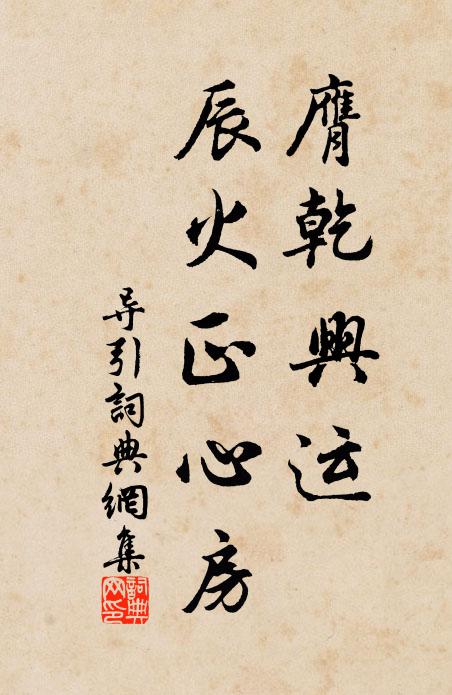 膺乾興运
辰火正心房
导引詞典網集
詞典
网印